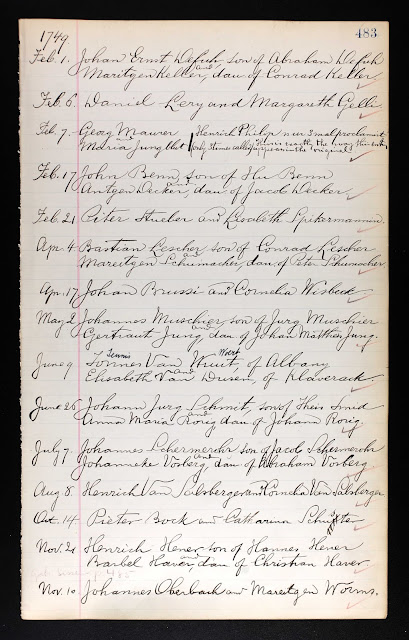 1749
483
Feb. 1. Johan Ernst Defuh, son of Abraham Defuh
and
Maritgen Keller, dau of Conrad Keller.
Feb. 6. Daniel Lery and Margareth Gelli.
Feb. 7. Georg Maurer
Maria Jung that
Henrich Philip nur 3 mal proclamirt
only 3 times called. This is exactly the way this entry
appears in the original
Feb. 17 John Benn, son of Hu Benn
and
Antgen Decker, dau. of Jacob Decker.
Feb. 21 Peter Stueber and Lisabeth Spikermannin.
Apr. 4 Bastian Lescher son of Conrad Lescher
and
Mareitgen Schumacher, dau. of Peter Schumacher.
Apr. 17 Johan Brussi and Cornelia Wisbeck
May 2 Johannes Muschier, son of Jurg Muschier
and
Gertraut Jung, dau of Johan Matthes Jung.
Teunis Wort
June 9 Tonnes Van Wruit, of Albany
and
Elisabeth Van Dusen, of Klaverack.
June 25 Johann Jurg Schmit, son of Theis Smid
and
Anna Maria Rorig dau of Johann Rorig.
July 7. Johannes Schermerohr son of Jacob Schermerohr
and
Johanneke Vosberg, dau of Abraham Vosberg
Aug 8. Henrich Van Salsberger and Cornelia Van Salsberger
Oct. 14 Pieter Bock and Catharina Schuster
Nov. 21 Henrich Hener son of Hannes Hener
and
Barbel Haver, dau, of Christian Haver.
Nov. 10 Johannes Oberbach and Mareitgen Worms.